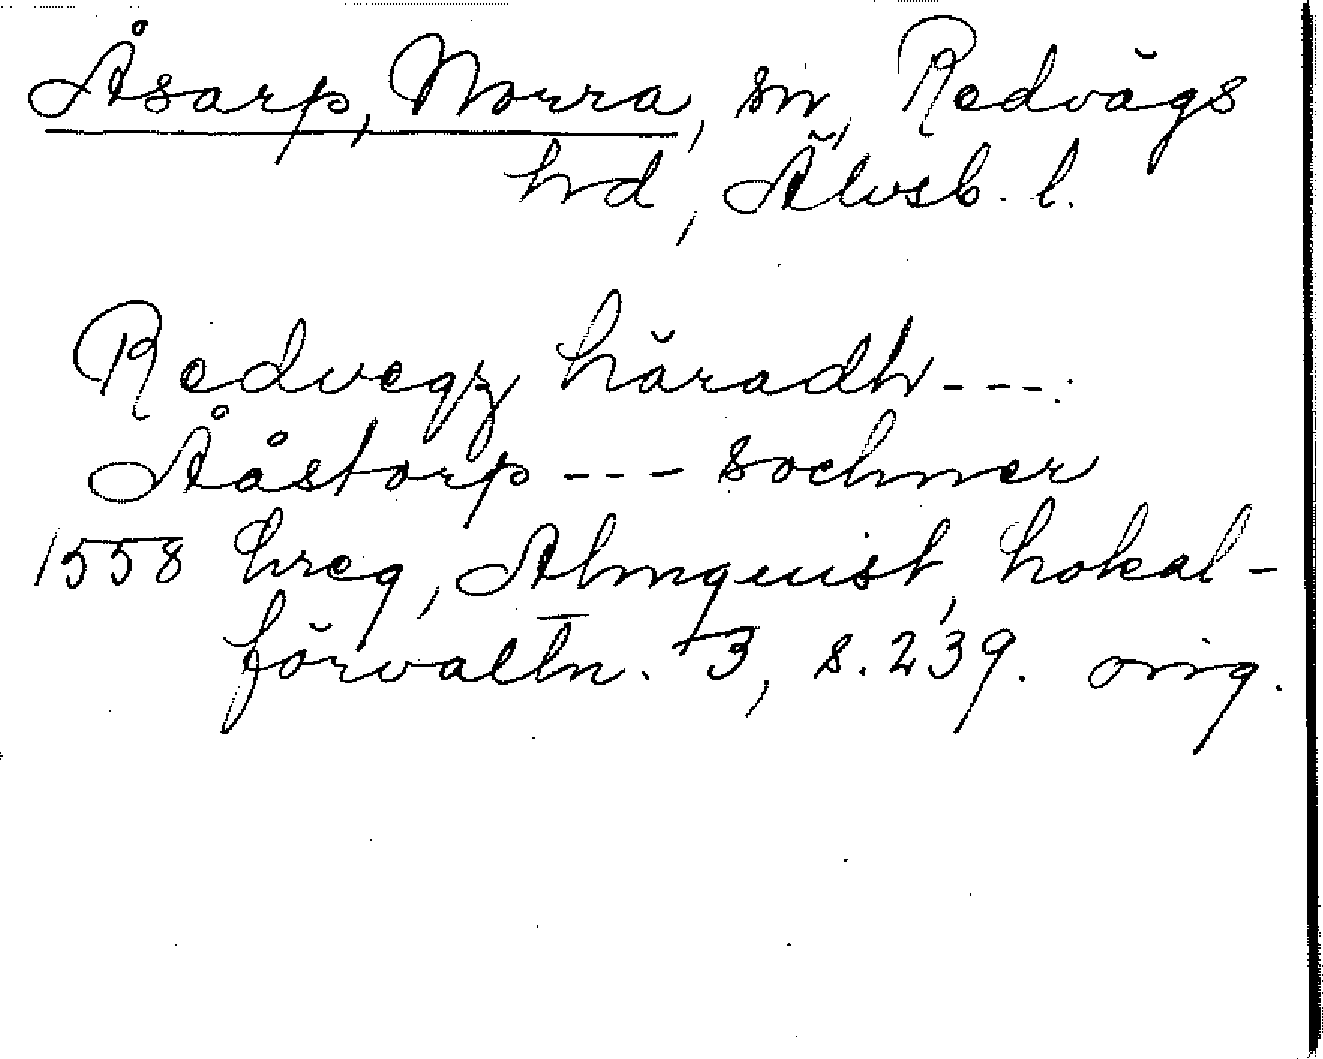 Åsarp, Norra, sn, Redvägs
hd, Älvsb. l.
Redvegz häradh ---
Ååstorp --- sochner
1558 hreg, Almquist, Lokal-
förvaltn. 3, s. 239. orig.